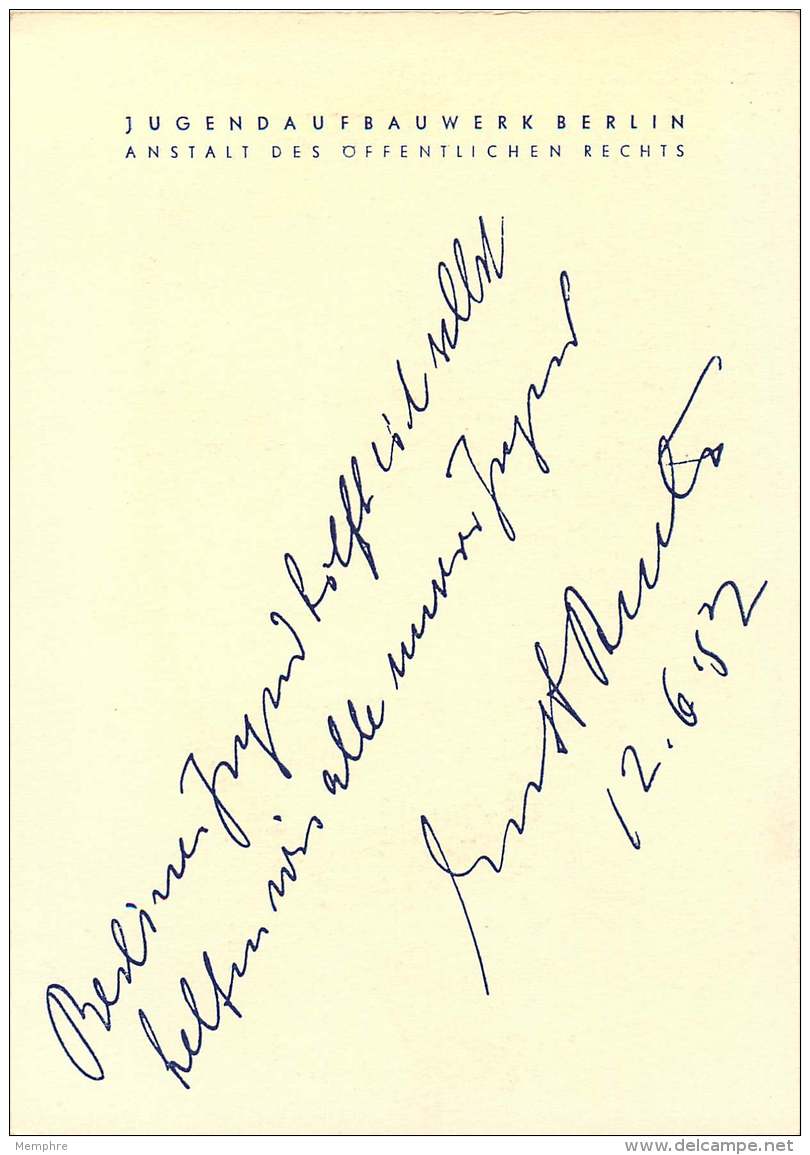 JUGENDAUFBAUWERK BERLIN
ANSTALT DES ÖFFENTLICHEN RECHTS
Berliner Jugend hilft sich selbst
helfen wir alle unserer Jugend
Ernst Reuter
12.6.52
Memphre
www.delcampe.net